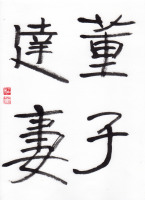 董子
達妻